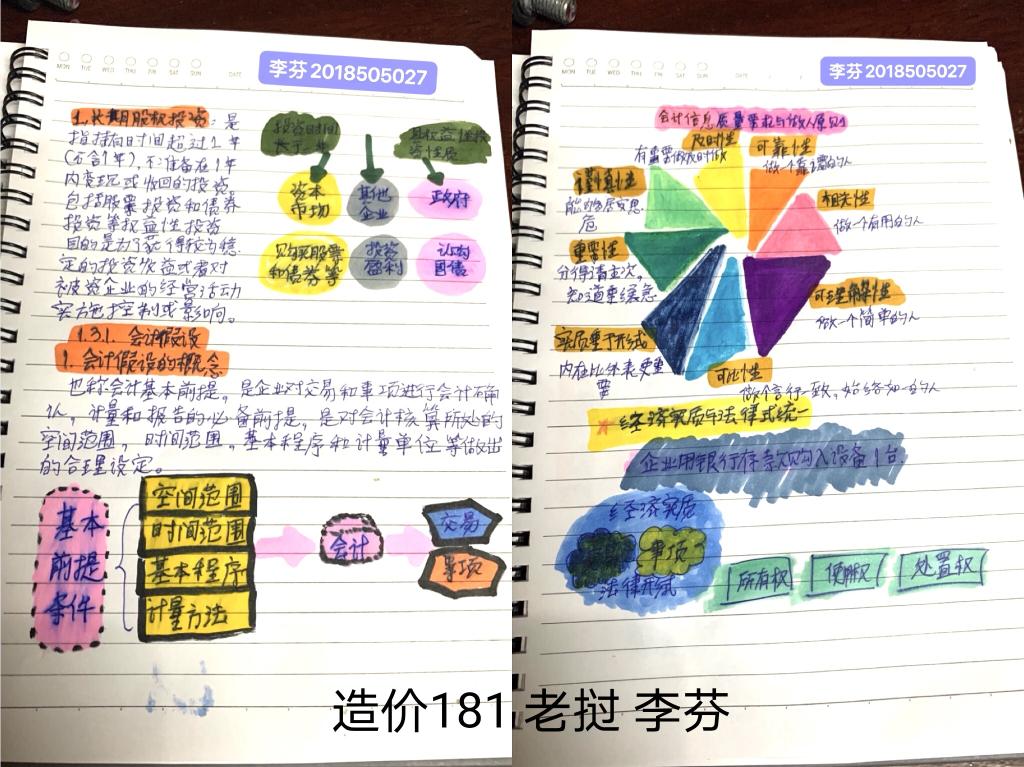 MON TUE WED THU FRI SAT SUN DATE
李芬2018505027
1.长期股权投资：是
指持有时间超过1年
(不含1年),不准备在1年
内变现或收回的投资,
包括股票投资和债券
投资等权益性投资
目的是为了获得较为稳
定的投资收益或者对
被投资企业的经营活动
实施控制或影响。
投资时间
长于一年
具权益性投
资性质
资本
市场
其他
企业
政府
购买股票
和债券等
投资
盈利
认购
国债
1.3.1.会计假设
1.会计假设的概念
也称会计基本前提,是企业对交易和事项进行会计确
认,计量和报告的必备前提,是对会计核算所处的
空间范围,时间范围,基本程序和计量单位等做出
的合理设定。
基本
前提
条件
空间范围
时间范围
基本程序
计量方法
会计
交易
事项
MON TUE WED THU FRI SAT SUN DATE
李芬2018505027
会计信息质量要求与做人原则
及时性
有需要做及时做
可靠性
做一个靠谱的人
谨慎性
相关性
做一个有用的人
重要性
分得清主次,
知道重缓急
可理解性
做一个简单的人
实质重于形式
内在比外表更重
要
可比性
做个言行一致,始终如一的人
经济实质与法律形式统一
企业用银行存款购入设备1台
经济实质
事项
法律形式
所有权
使用权
处置权
造价181 老挝 李芬